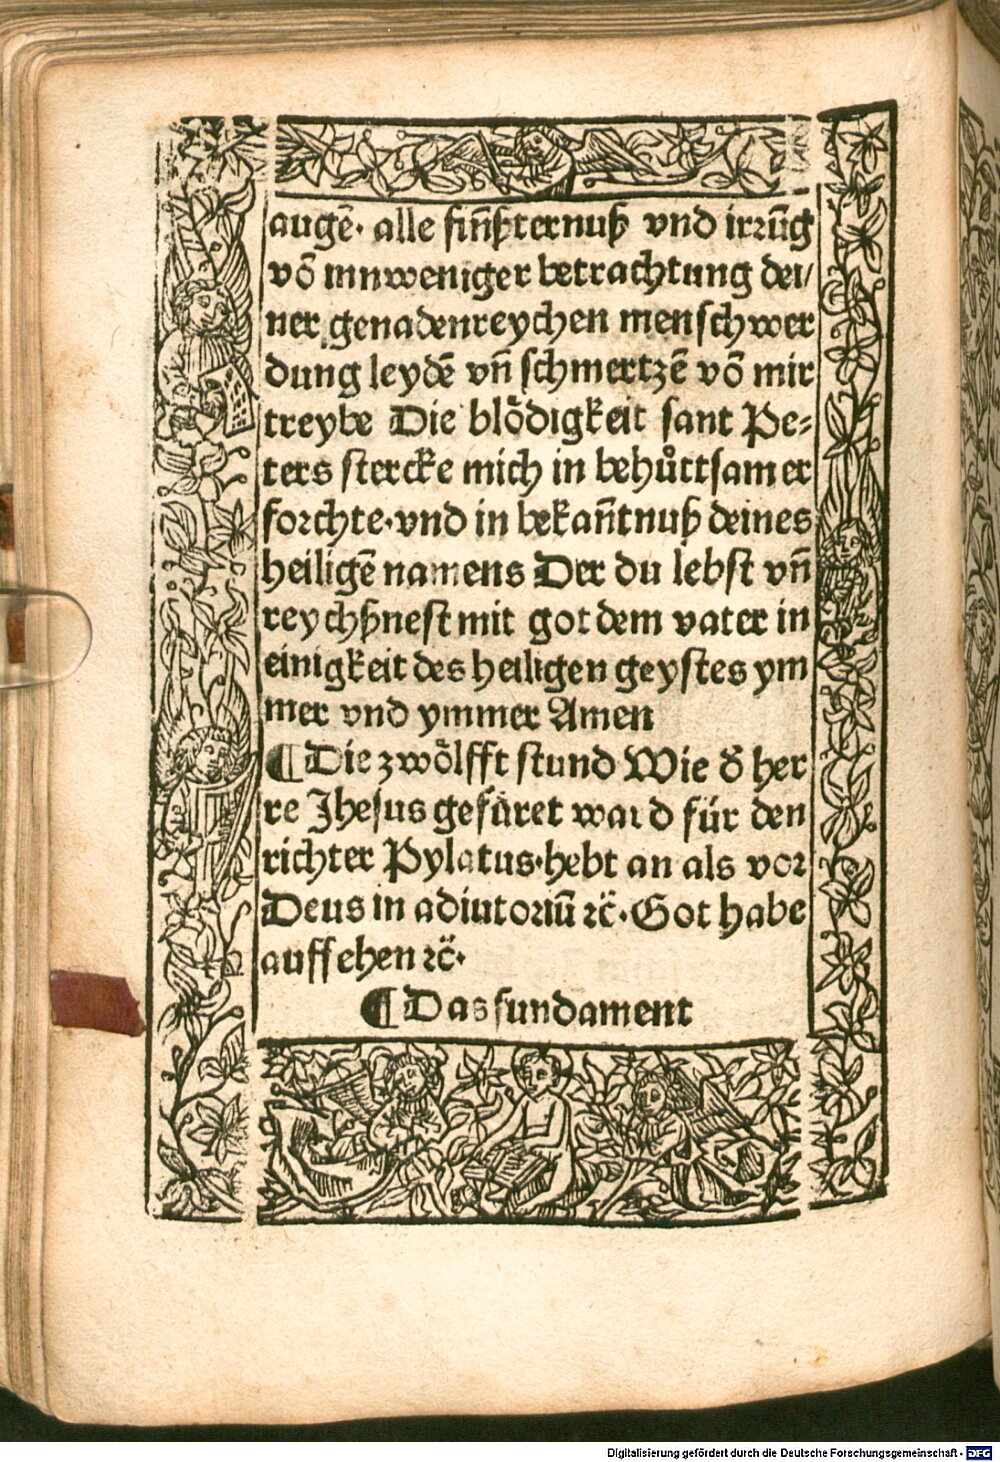 augē. alle finn̄ßternuß vnd irrūg
vō innweniger betrachtung dei/
ner genadenreychen menschwer
dung leydē vn̄ schmertzē vō mir
treybe Die blödigkeit sant Pe⸗
ters stercke mich in behůttsamer
forchte.vnd in bekan̄tnuß deines
heiligē namens Der du lebst vn̄
reychßnest mit got dem vater in
einigkeit des heiligen geystes ym
mer vnd ymmer Amen
¶Die zwölfft stund Wie d̄ her
re Jhesus gefüret ward für den
richter Pylatus.hebt an als vor
Deus in adiutoriū ꝛc̈. Got habe
auffsehen ꝛc̈.
¶Das fundament
Digitalisierung gefördert durch die Deutsche Forschungsgemeinschaft - DFG